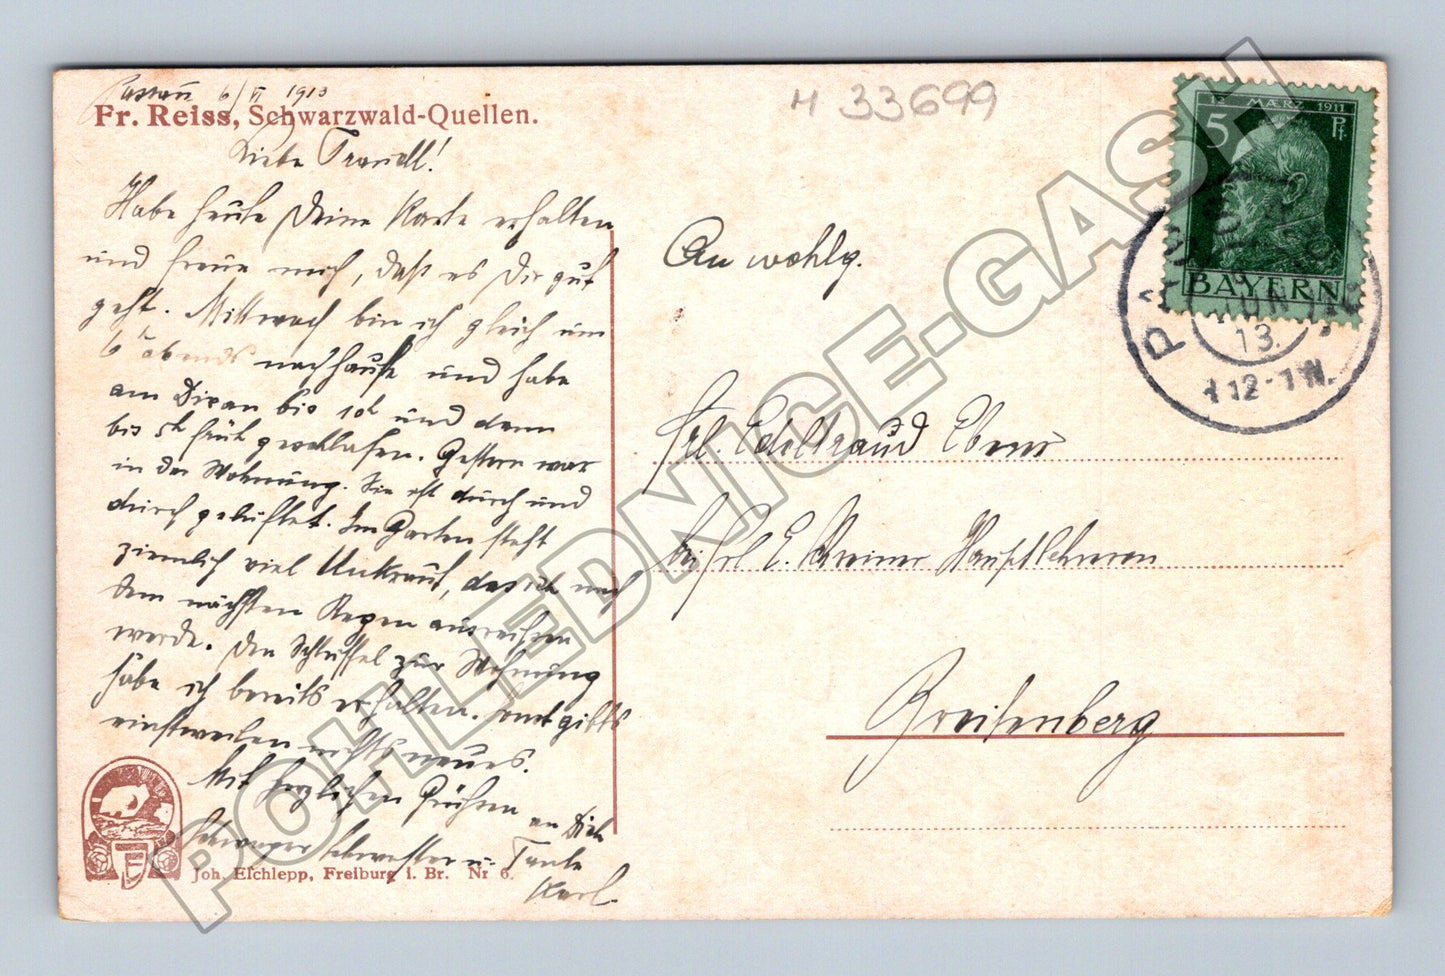 Passau 6/VI 1913
Fr. Reiss, Schwarzwald-Quellen.
Liebe Traudl!
Habe heute Deine Karte erhalten
und freue mich, daß es Dir gut
geht. Mittwoch bin ich gleich um
6 h abends nachhause und habe
am Divan bis 10h und dann
bis 5h früh geschlafen. Gestern war
in der Wohnung. Sie ist durch und
durch gelüftet. Im Garten steht
ziemlich viel Unkraut, das ich nach
dem nächsten Regen ausreißen
werde. Den Schlüssel zur Wohnung
habe ich bereits erhalten. Sonst gibts
einstweilen nichts neues.
Mit herzlichen Grüßen an Dich
Schwager Schwester u. Tante
Karl.
Joh. Elchlepp, Freiburg i. Br. Nr 6.
H 33699
12. MÆRZ 1911
5 Pf
BAYERN
PASSAU
JUN
13.
12-1 N.
An wohlg.
Frl. Edeltraud Ebner
bei Frl. E. Hauptlehrerin
Breitenberg
POHLEDNICE-GASH